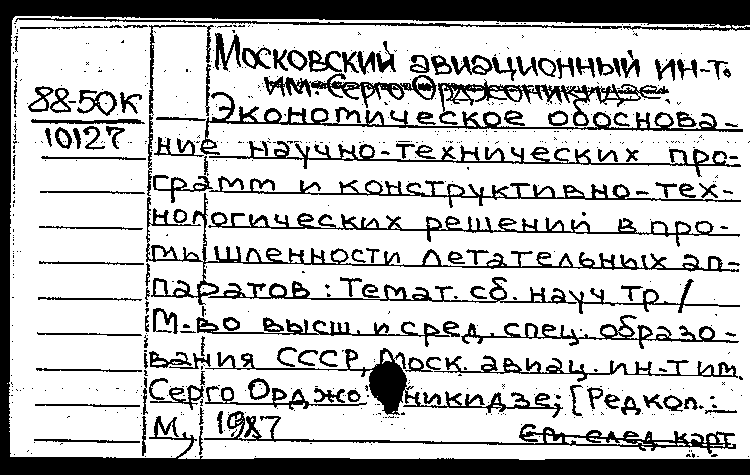 Московский авиационный ин-т.
им. Серго Орджоникидзе.
88-50К
10127
Экономическое обоснова-
ние научно-технических про-
грамм и конструктивно-тех-
нологических решений в про-
мышленности летательных ап-
паратов : Темат. сб. науч. тр. /
М-во высш. и сред. спец. образо-
вания СССР, Моск. авиац. ин-т им.
Серго Орджоникидзе; [Редкол.:
М., 1987
См. след. карт.